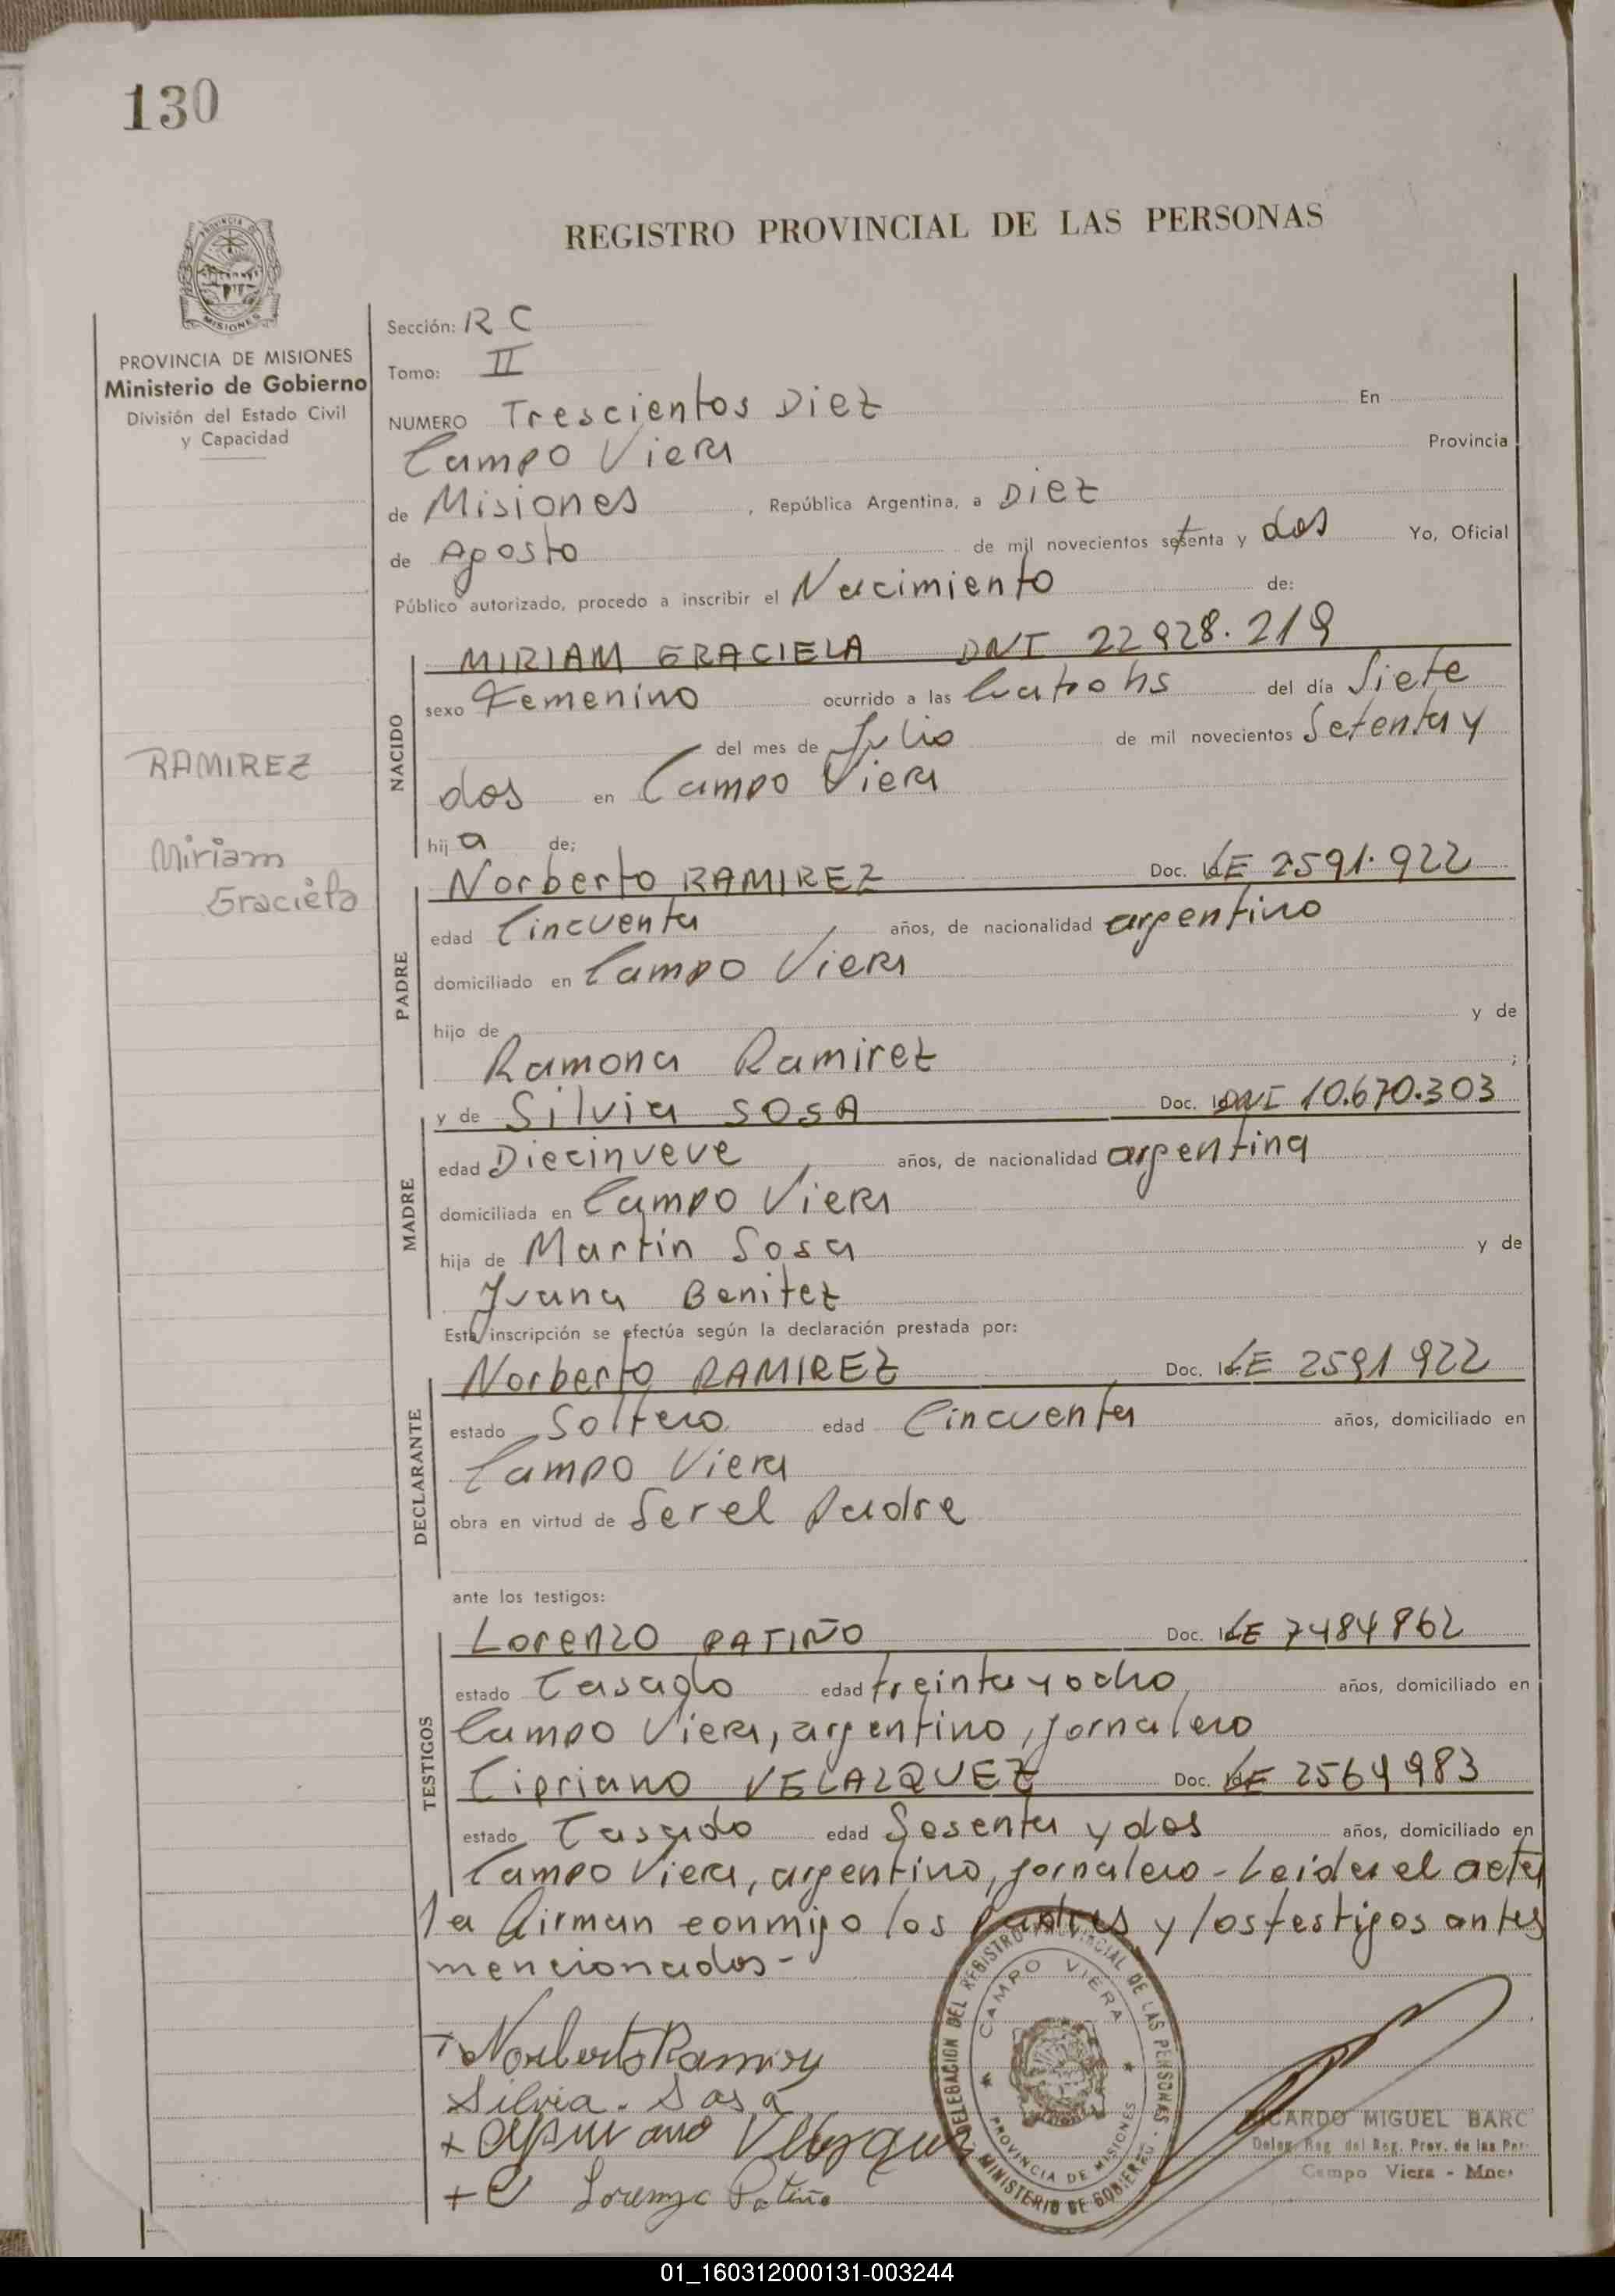 130
REGISTRO PROVINCIAL DE LAS PERSONAS
PROVINCIA DE
MISIONES
PROVINCIA DE MISIONES
Ministerio de Gobierno
División del Estado Civil
y Capacidad
RAMIREZ
Miriam
Graciela
Sección: R C
Tomo: II
NUMERO Trescientos Diez En
Campo Viera Provincia
de Misiones, República Argentina, a Diez
de Agosto de mil novecientos setenta y dos Yo, Oficial
Público autorizado, procedo a inscribir el Nacimiento de:
NACIDO
MIRIAM GRACIELA DNI 22928.219
sexo Femenino ocurrido a las Cuatro hs del día Siete
del mes de Julio de mil novecientos Setenta y
dos en Campo Viera
hij a de;
PADRE
Norberto RAMIREZ Doc. LE 2591.922
edad Cincuenta años, de nacionalidad argentino
domiciliado en Campo Viera
hijo de y de
Ramona Ramirez ;
MADRE
y de Silvia SOSA Doc. DNI 10.670.303
edad Diecinueve años, de nacionalidad argentina
domiciliada en Campo Viera
hija de Martin Sosa y de
Juana Benitez
Esta inscripción se efectúa según la declaración prestada por:
DECLARANTE
Norberto RAMIREZ Doc. LE 2591922
estado Soltero edad Cincuenta años, domiciliado en
Campo Viera
obra en virtud de Ser el Padre
ante los testigos:
TESTIGOS
Lorenzo PATIÑO Doc. LE 7484862
estado Casado edad treinta y ocho años, domiciliado en
Campo Viera, argentino, jornalero
Cipriano VELAZQUEZ Doc. LE 2564983
estado Casado edad Sesenta y dos años, domiciliado en
Campo Viera, argentino, jornalero - Leida el acta
la firman conmigo los Padres y los testigos antes
mencionados -
Norberto Ramirez
Silvia. Sosa
Lorenzo Patiño
DELEGACION DEL REGISTRO PROVINCIAL DE LAS PERSONAS - MINISTERIO DE GOBIERNO
CAMPO VIERA
PROVINCIA DE MISIONES
RICARDO MIGUEL BARC
Deleg. Reg. del Reg. Prov. de las Per.
Campo Viera - Mnes
01_160312000131-003244